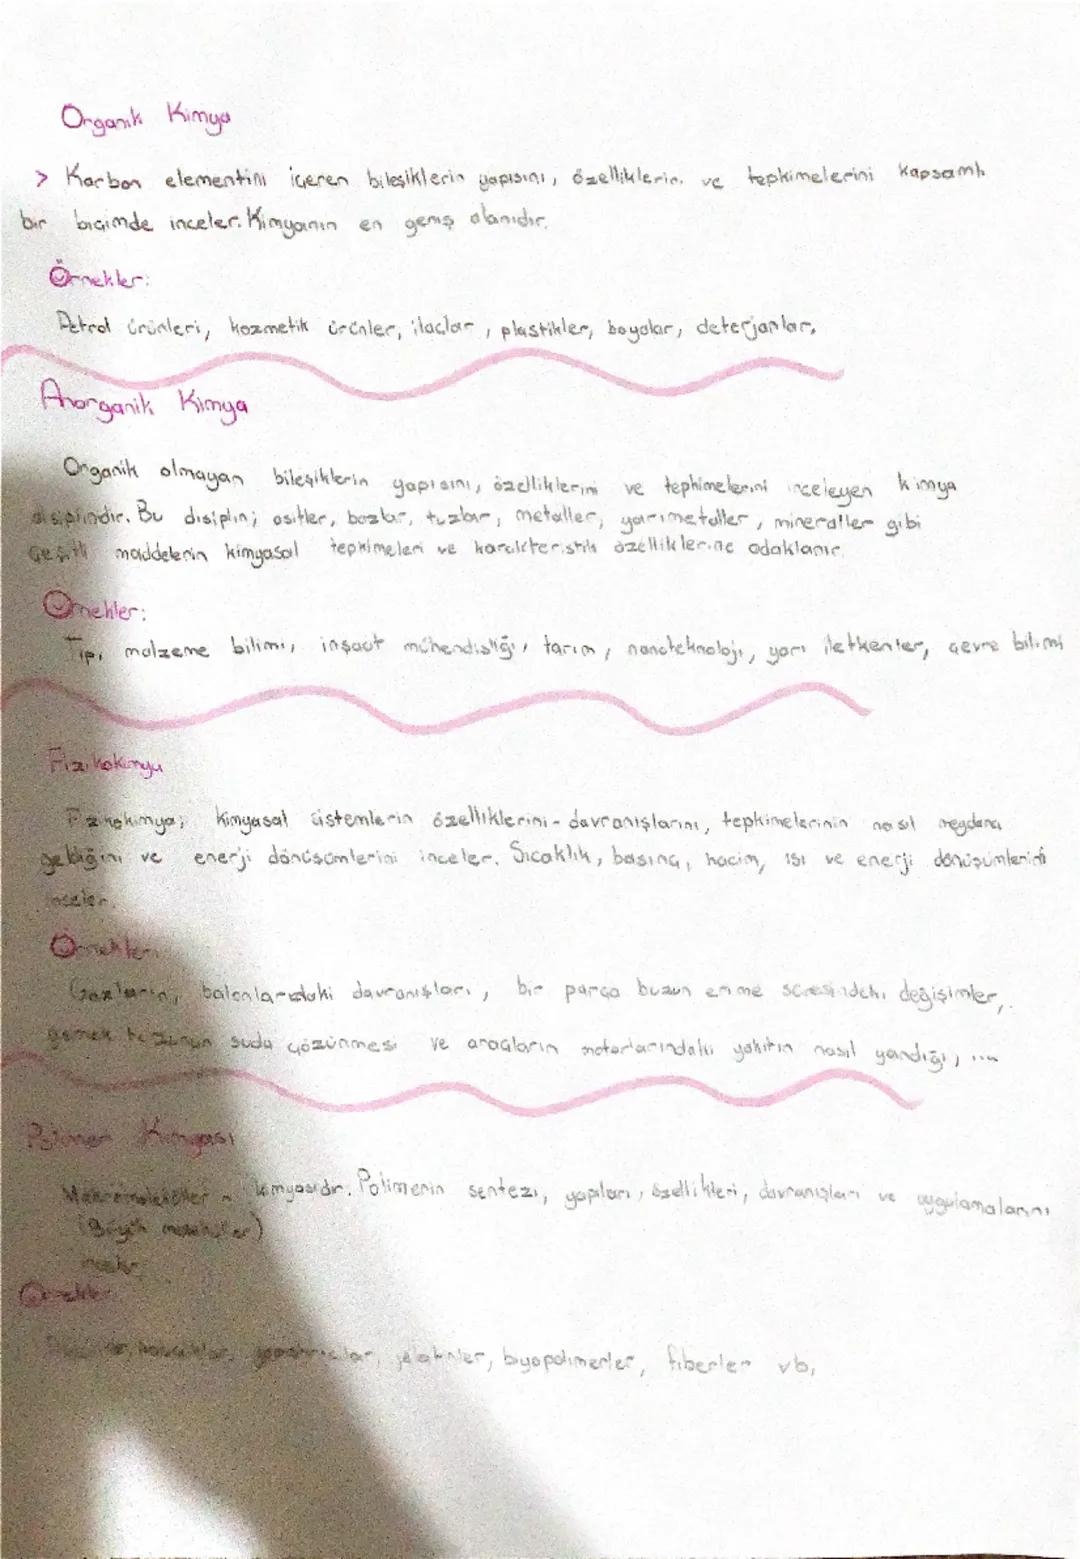 Organik Kimya
> Karbon elementini içeren bileşiklerin yapısını, özelliklerin. ve tepkimelerini kapsamlı
bir biçimde inceler. Kimyanın en geniş alanıdır.
Örnekler:
Petrol ürünleri, kozmetik ürünler, ilaçlar, plastikler, boyalar, deterjanlar,
Anorganik Kimya
Organik olmayan bileşiklerin yapısını, özelliklerini ve tepkimelerini inceleyen kimya
disiplinidir. Bu disiplin; asitler, bazlar, tuzlar, metaller, yarımetaller, mineraller gibi
çeşitli maddelerin kimyasal tepkimeleri ve karakteristik özelliklerine odaklanır.
Örnekler:
Tıp, malzeme bilimi, inşaat mühendisliği, tarım, nanoteknoloji, yarı iletkenler, çevre bilimi
Fizikokimya
Fizikokimya; kimyasal sistemlerin özelliklerini - davranışlarını, tepkimelerinin nasıl meydana
geldiğini ve enerji dönüşümlerini inceler. Sıcaklık, basınç, hacim, ısı ve enerji dönüşümlerini
inceler.
Örnekler:
Gazların, balonlardaki davranışları, bir parça buzun erime süresindeki değişimler,
yemek tuzunun suda çözünmesi ve araçların motorlarındaki yakıtın nasıl yandığı, ...
Polimer Kimyası
Makromoleküller kimyasıdır. Polimerin sentezi, yapıları, özellikleri, davranışları ve uygulamalarını
(Büyük moleküller)
inceler.
Örnekler
yapıştırıcılar, jelatinler, biyopolimerler, fiberler vb,